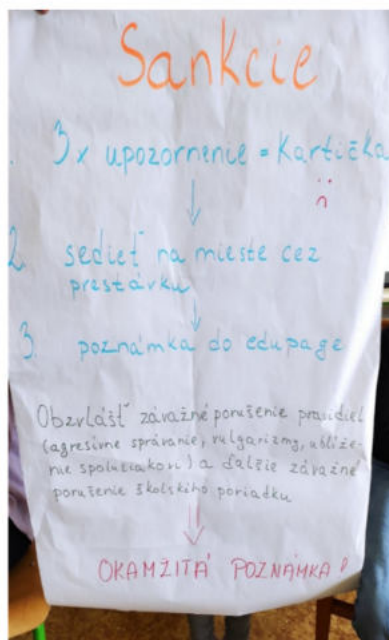 Sankcie
. 3x upozornenie = Kartička
2. sedieť na mieste cez
prestávku
3. poznámka do edupage
Obzvlášť závažné porušenie pravidiel
(agresívne správanie, vulgarizmy, ublíže-
nie spolužiakovi) a ďalšie závažné
porušenie školského poriadku
OKAMŽITÁ POZNÁMKA!